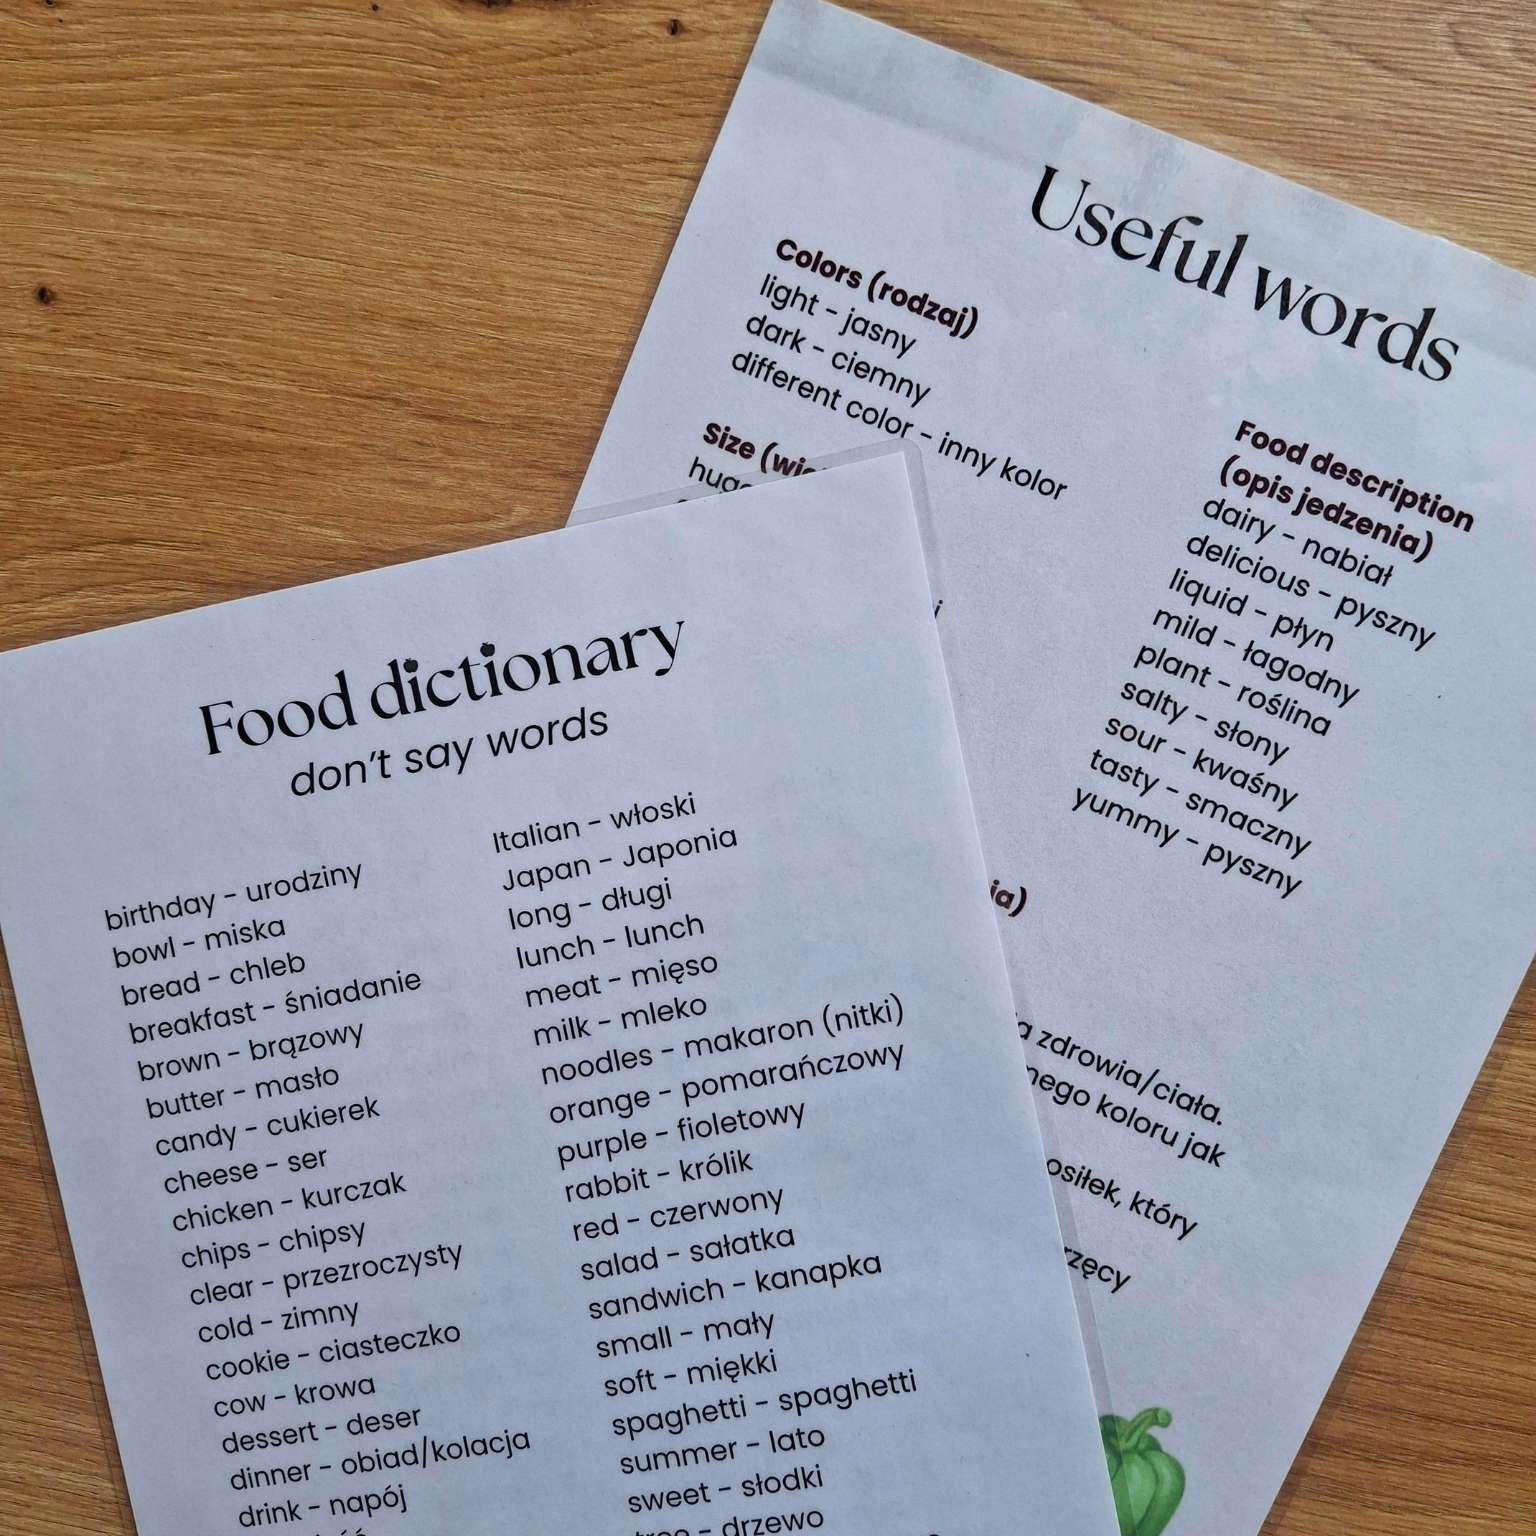 Useful words
Colors (rodzaj)
light - jasny
dark - ciemny
different color - inny kolor
Size
Food description
(opis jedzenia)
dairy - nabiał
delicious - pyszny
liquid - płyn
mild - łagodny
plant - roślina
salty - słony
sour - kwaśny
tasty - smaczny
yummy - pyszny
zdrowia/ciała.
koloru jak
który
Food dictionary
don't say words
birthday - urodziny
bowl - miska
bread - chleb
breakfast - śniadanie
brown - brązowy
butter - masło
candy - cukierek
cheese - ser
chicken - kurczak
chips - chipsy
clear - przezroczysty
cold - zimny
cookie - ciasteczko
cow - krowa
dessert - deser
dinner - obiad/kolacja
drink - napój
Italian - włoski
Japan - Japonia
long - długi
lunch - lunch
meat - mięso
milk - mleko
noodles - makaron (nitki)
orange - pomarańczowy
purple - fioletowy
rabbit - królik
red - czerwony
salad - sałatka
sandwich - kanapka
small - mały
soft - miękki
spaghetti - spaghetti
summer - lato
sweet - słodki
tree - drzewo